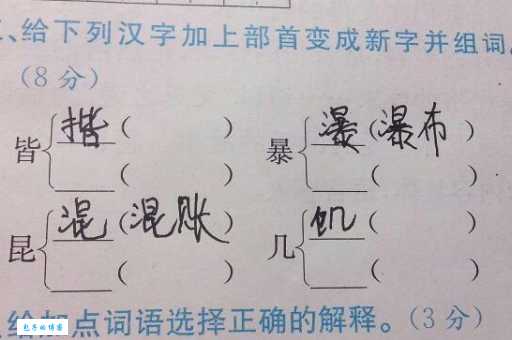 、给下列汉字加上部首变成新字并组词。
(8分)
皆 揩( ) 暴 瀑(瀑布)
___( ) ___( )
昆 混(混账) 几 饥( )
___( ) ___( )
给加点词语选择正确的解释。(3分)